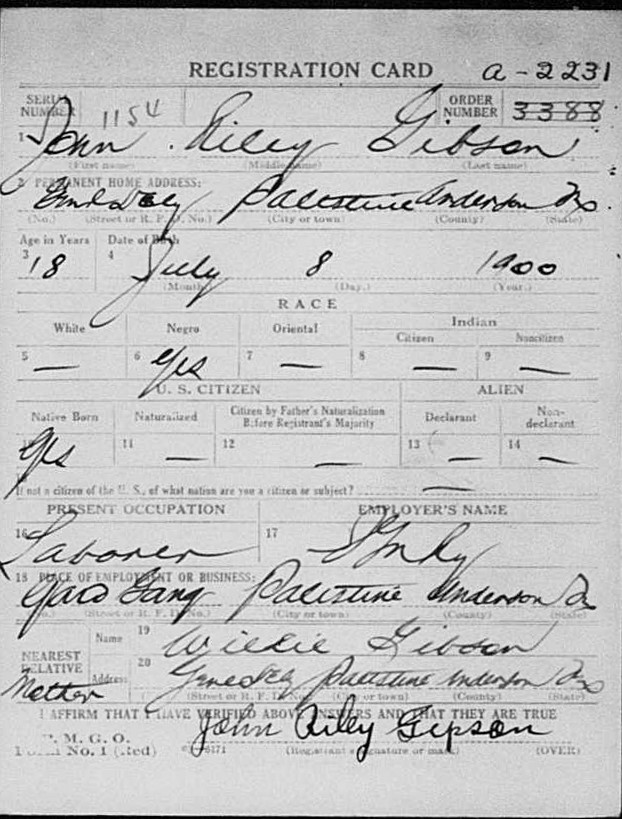 REGISTRATION CARD a-2231
SERIAL NUMBER 1154 ORDER NUMBER 3388
1 John Riley Gibson
(First name) (Middle name) (Last name)
2 PERMANENT HOME ADDRESS:
Palestine Anderson Tex.
(No.) (Street or R. F. D. No.) (City or town) (County) (State)
Age in Years Date of Birth
3 18 4 July 8 1900
(Month) (Day.) (Year.)
RACE
White Negro Oriental Indian
Citizen Noncitizen
5 — 6 Yes 7 — 8 — 9 —
U. S. CITIZEN ALIEN
Native Born Naturalized Citizen by Father's Naturalization Before Registrant's Majority Declarant Non-declarant
10 Yes 11 — 12 — 13 — 14 —
If not a citizen of the U. S., of what nation are you a citizen or subject? —
PRESENT OCCUPATION EMPLOYER'S NAME
16 Laborer 17
18 PLACE OF EMPLOYMENT OR BUSINESS:
Yard Gang Palestine Anderson Tex
(No.) (Street or R. F. D. No.) (City or town) (County) (State)
NEAREST RELATIVE Name 19 Willie Gibson
Mother Address 20 Palestine Anderson Tex
(Street or R. F. D. No.) (City or town) (County) (State)
I AFFIRM THAT I HAVE VERIFIED ABOVE ANSWERS AND THAT THEY ARE TRUE
John Riley Gipson
P. M. G. O.
Form No. 1 (Red) (Registrant's signature or mark) (OVER)